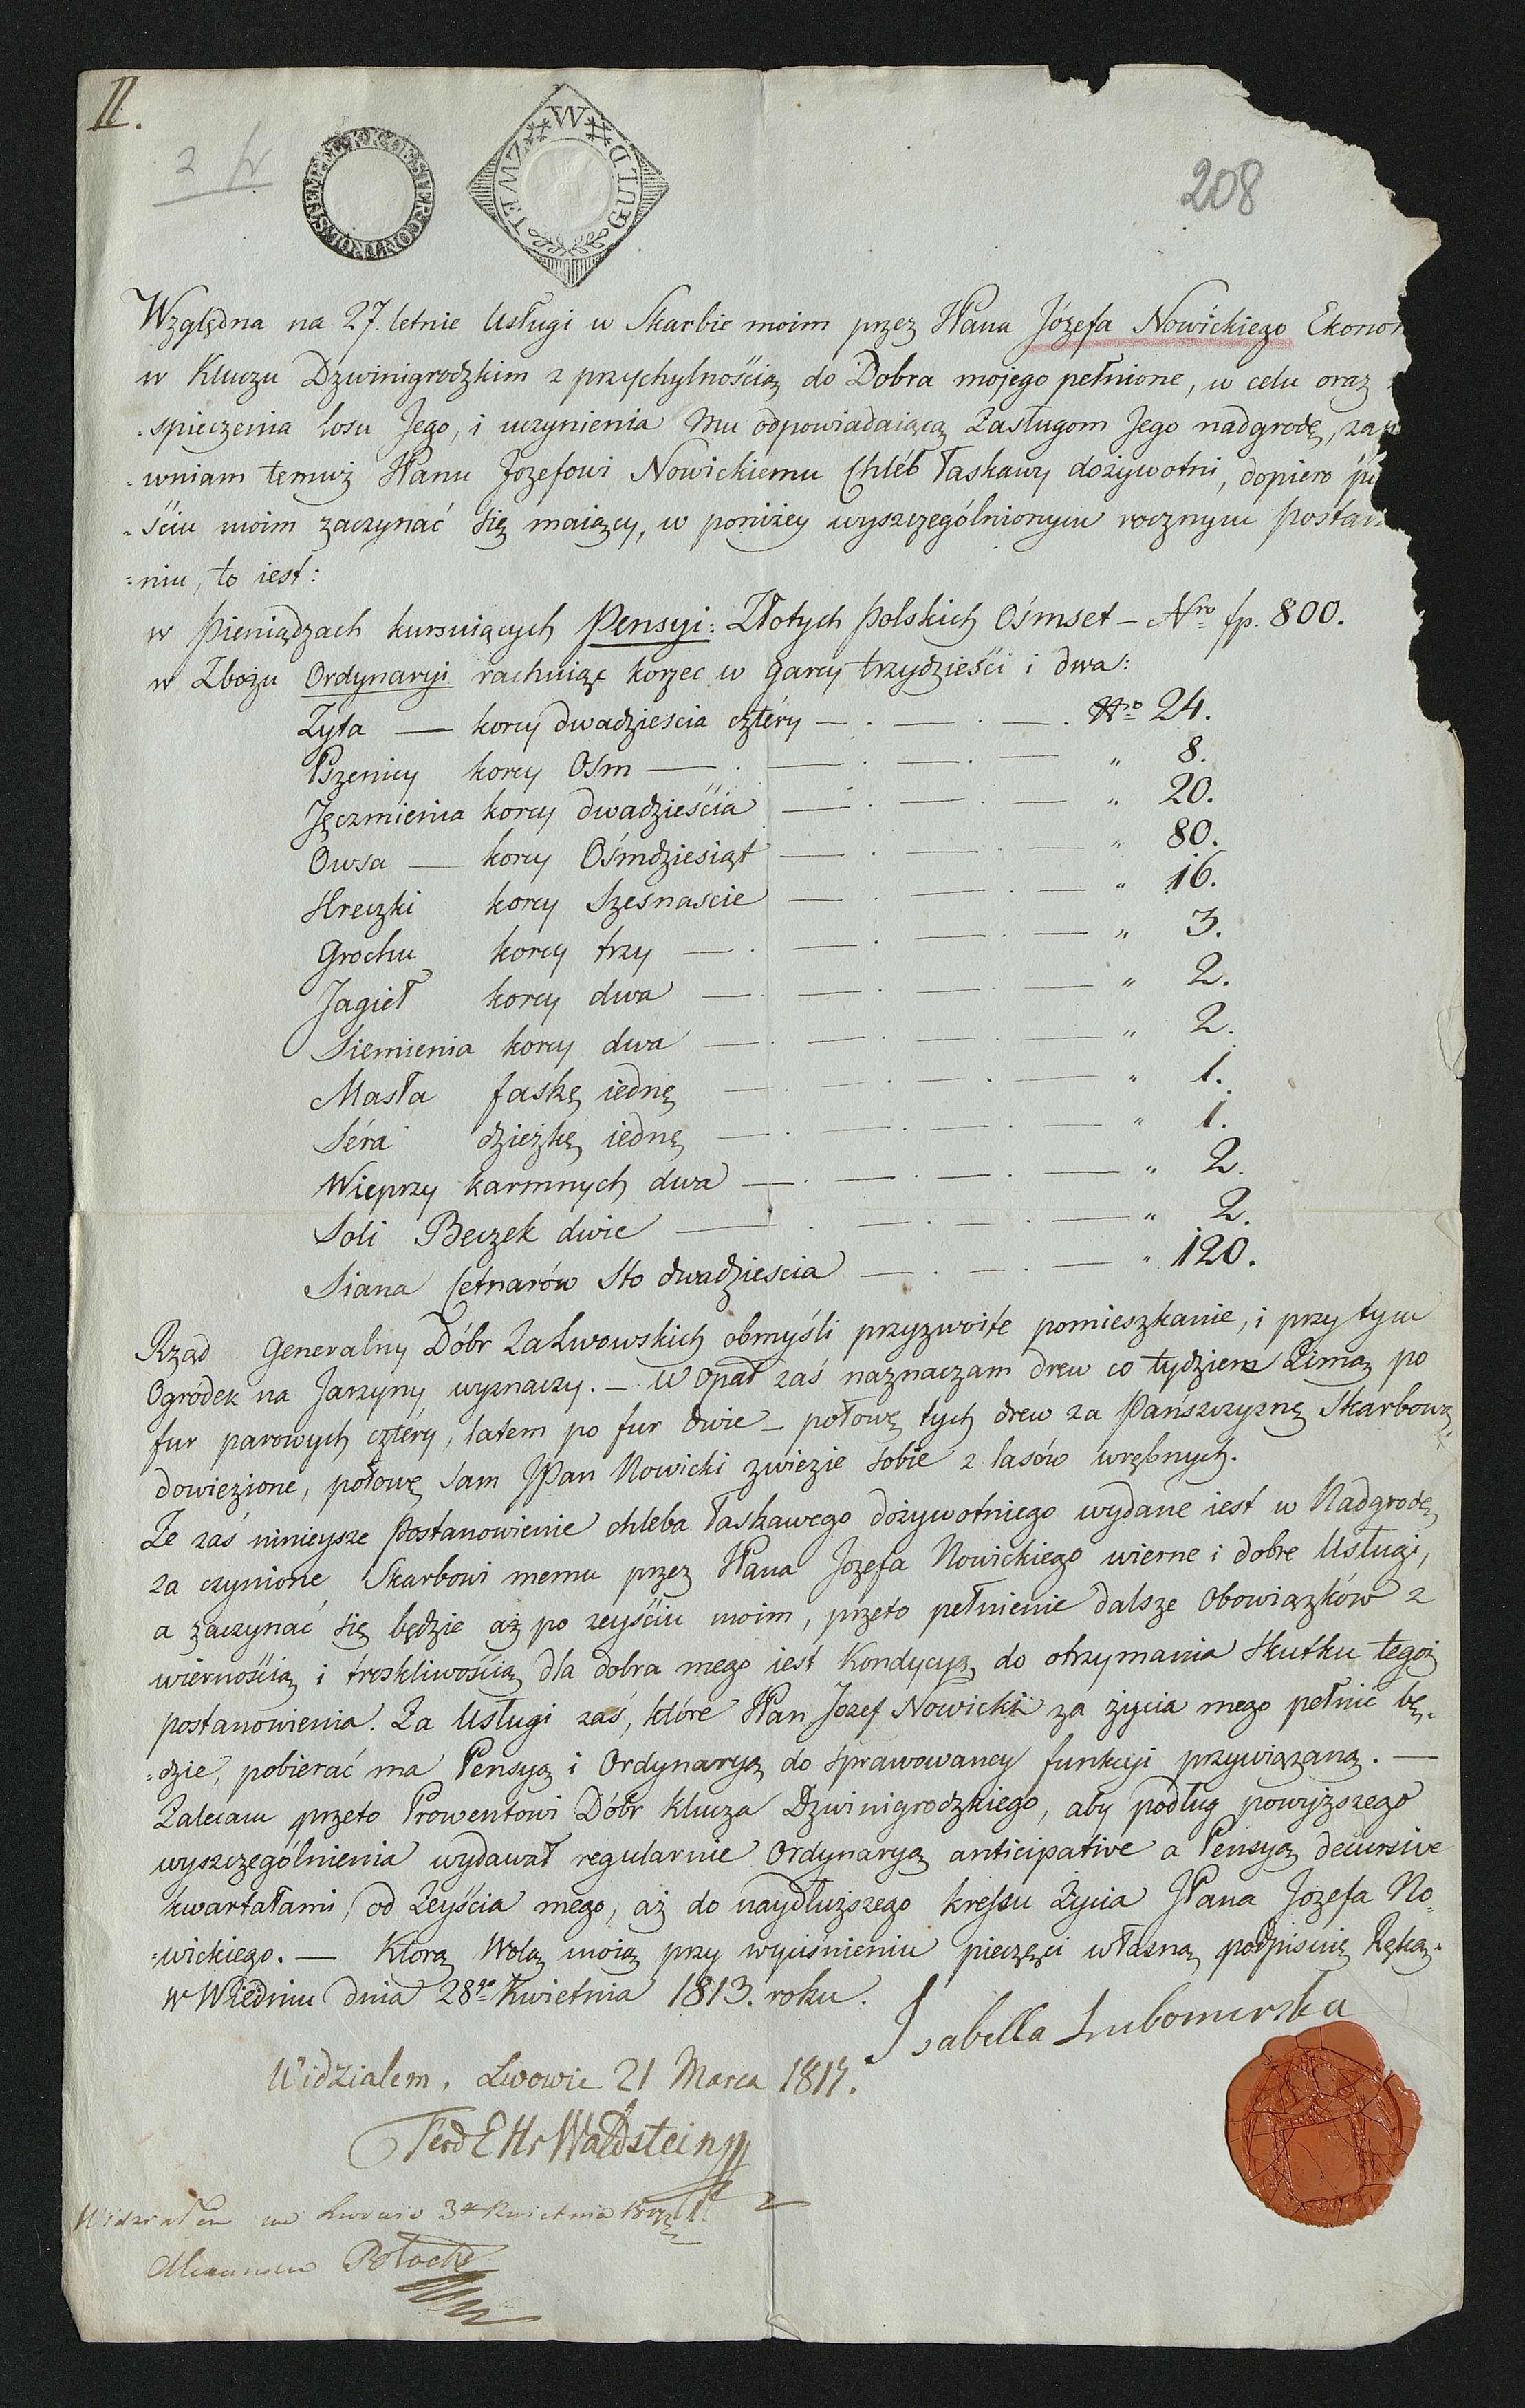 II.
2 fr
STEMPEL REGISTER CONTROLE
W ZWEI GULD
208
Względna na 27. letnie Usługi w Skarbie moim przez JPana Józefa Nowickiego Ekonom
w Kluczu Dzwinigrodzkim z przychylnością do Dobra mojego pełnione, w celu oraz
=spieczenia losu Jego, i uczynienia Mu odpowiadaiącą Zasługom Jego nadgrodę, zap
=wniam temuż JPanu Jozefowi Nowickiemu Chléb Łaskawy dożywotni, dopiero po
=ściu moim zaczynać się maiący, w poniżey wyszczególnionym rocznym postan
=niu, to iest:
w Pieniądzach kursuiących Pensyi: Złotych Polskich Ośmset – Nro fp. 800.
w Zbożu Ordynaryi rachuiąc korzec w garcy trzydzieści i dwa:
Żyta — korcy dwadziescia cztéry — . — . — . Nro 24.
Pszenicy korcy Osm — . — . — . — " 8.
Jęczmienia korcy dwadzieścia — . — . — " 20.
Owsa — korcy Ośmdziesiąt — . — . — " 80.
Hreczki korcy Szesnascie — . — . — " 16.
Grochu korcy trzy — . — . — . — " 3.
Jagieł korcy dwa — . — . — . — " 2.
Siemienia korcy dwa — . — . — . — " 2.
Masła faskę iednę — . — . — . — " 1.
Séra dzieżkę iednę — . — . — . — " 1.
Wieprzy karmnych dwa — . — . — . — " 2.
Soli Beczek dwie — . — . — . — " 2.
Siana Cetnarów Sto dwadziescia — . — . — " 120.
Rząd Generalny Dóbr Zalwowskich obmyśli przyzwoite pomieszkanie, i przy tym
Ogrodek na Jarzyny wyznaczy. – W Opał zaś naznaczam drew co tydzien Zimą po
fur parowych cztéry, latem po fur dwie – połowę tych drew za Pańszczyznę Skarbową
dowiezione, połowę sam JPan Nowicki zwiezie sobie z lasów wrębnych.
Że zaś ninieysze Postanowienie chleba łaskawego dożywotniego wydane iest w Nadgrodę
za czynione Skarbowi memu przez JPana Jozefa Nowickiego wierne i dobre Usługi,
a zaczynać się będzie aż po zeyściu moim, przeto pełnienie dalsze Obowiązków z
wiernością i troskliwością dla dobra mego iest Kondycyą do otrzymania Skutku tegoż
postanowienia. Za Usługi zaś, które JPan Jozef Nowicki za życia mego pełnić bę=
=dzie, pobierać ma Pensyą i Ordynaryą do sprawowaney funkcyi przywiązaną. —
Zalecam przeto Prowentowi Dóbr Klucza Dzwinigrodzkiego, aby podług powyższego
wyszczególnienia wydawał regularnie Ordynaryą anticipative a Pensyą decursive
kwartałami, od Zeyścia mego, aż do naydłuższego kressu Życia JPana Jozefa No=
=wickiego. — Którą Wolą moią przy wyciśnieniu pieczęci własną podpisuię Ręką.
w Wiedniu dnia 28go Kwietnia 1813. roku.
Isabella Lubomirska
Widzialem, Lwowie 21 Marca 1817.
Ferd E Hr Waldstein
Widziałem we Lwowie 3go Kwietnia
Alexander Potocki